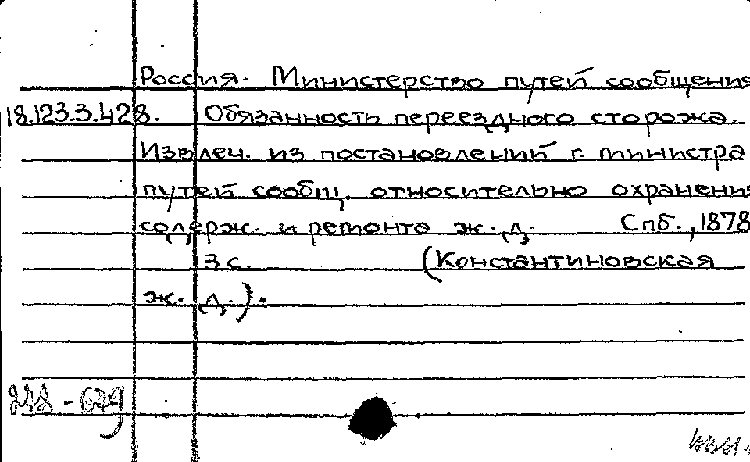 Россия. Министерство путей сообщения
18.123.3.428. Обязанность переездного сторожа.
Извлеч. из постановлений г. министра
путей сообщ. относительно охранени
содерж. и ремонта ж. д. Спб., 1878
3 с. (Константиновская
ж. д.).